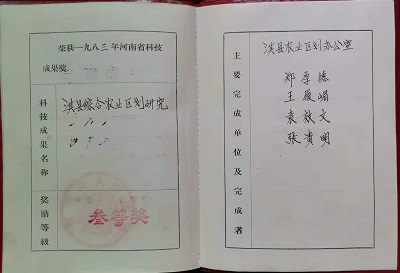 荣获一九八三年河南省科技
成果奖
科技成果名称
淇县综合农业区划研究
奖励等级
叁等奖
主要完成单位及完成者
淇县农业区划办公室
郑李德
王履嵋
袁效文
张贵明